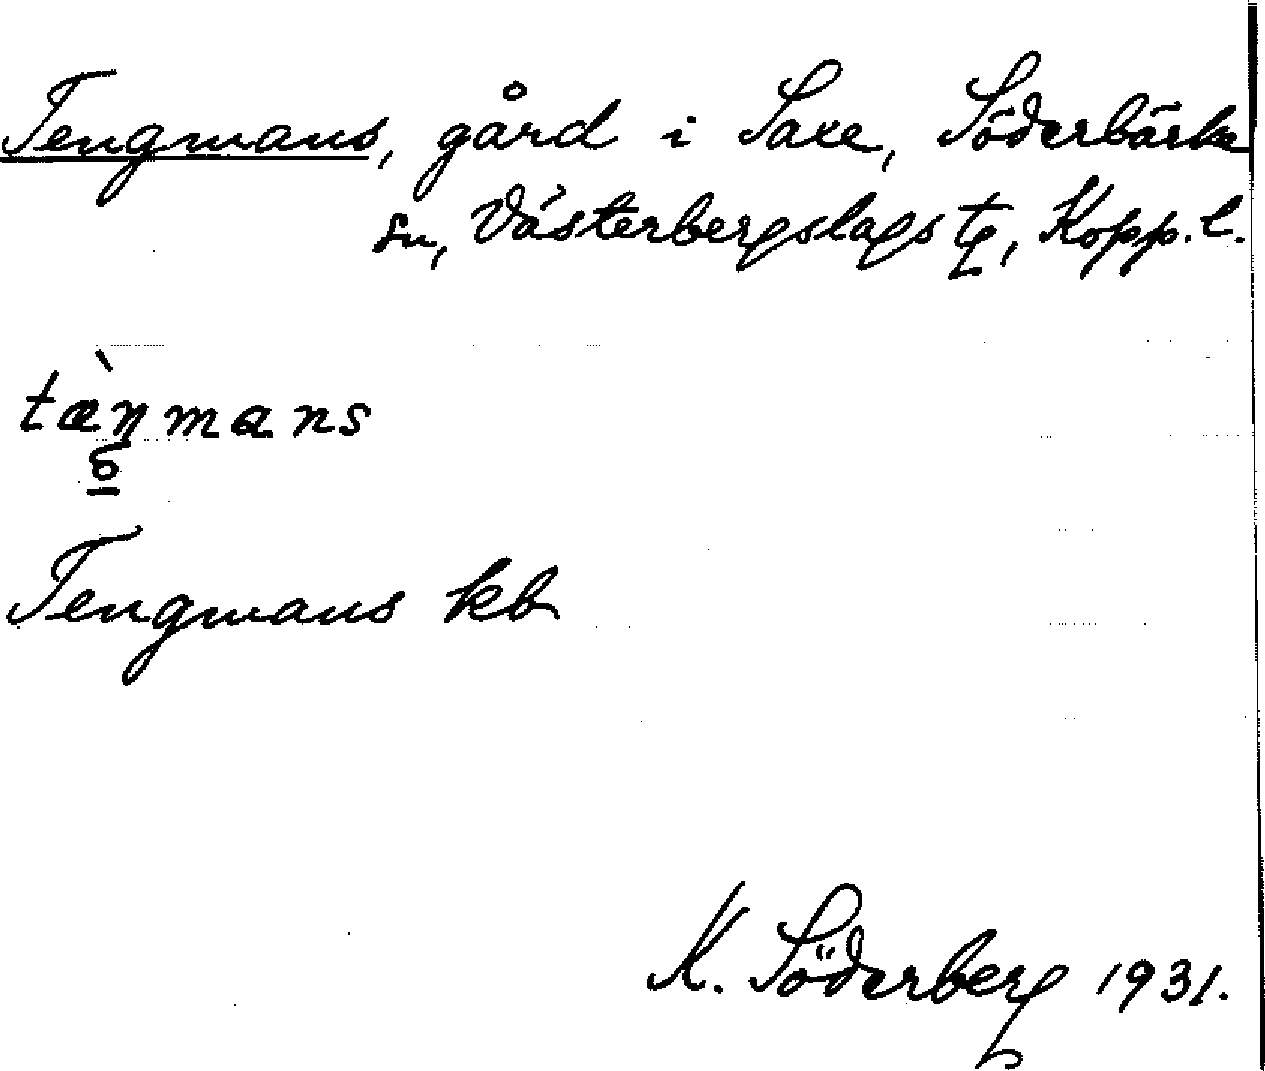 Tengmans, gård i Saxe, Söderbärke
sn, Västerbergslags tg, Kopp. l.
tæ̀ŋmans
Tengmans kb
K. Söderberg 1931.